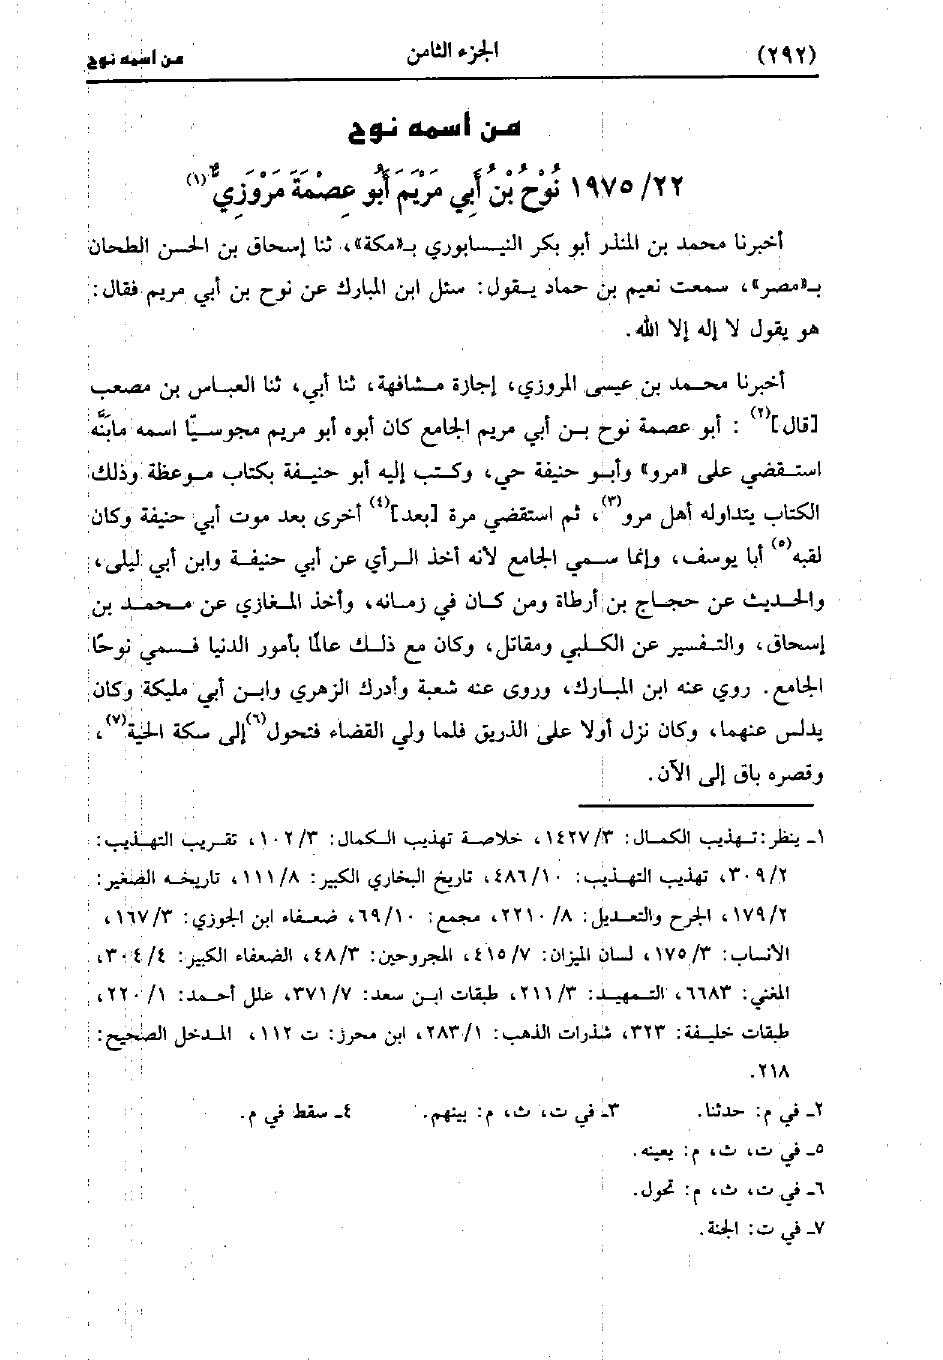 (٢٩٢) الجزء الثامن من اسمه نوح
من اسمه نوح
١٩٧٥/٢٢ نُوْحُ بْنُ أَبِي مَرْيَمَ أَبُو عِصْمَةَ مَرْوَزِيٌّ(١)
أخبرنا محمد بن المنذر أبو بكر النيسابوري بـ«مكة»، ثنا إسحاق بن الحسن الطحان
بـ«مصر»، سمعت نعيم بن حماد يقول: سئل ابن المبارك عن نوح بن أبي مريم فقال:
هو يقول لا إله إلا الله.
أخبرنا محمد بن عيسى المروزي، إجازة مشافهة، ثنا أبي، ثنا العباس بن مصعب
[قال](٢) : أبو عصمة نوح بن أبي مريم الجامع كان أبوه أبو مريم مجوسيًا اسمه مابَنَّه
استقضي على «مرو» وأبو حنيفة حي، وكتب إليه أبو حنيفة بكتاب موعظة وذلك
الكتاب يتداوله أهل مرو(٣)، ثم استقضي مرة [بعد](٤) أخرى بعد موت أبي حنيفة وكان
لقبه(٥) أبا يوسف، وإنما سمي الجامع لأنه أخذ الرأي عن أبي حنيفة وابن أبي ليلى،
والحديث عن حجاج بن أرطاة ومن كان في زمانه، وأخذ المغازي عن محمد بن
إسحاق، والتفسير عن الكلبي ومقاتل، وكان مع ذلك عالمًا بأمور الدنيا فسمي نوحًا
الجامع. روي عنه ابن المبارك، وروى عنه شعبة وأدرك الزهري وابن أبي مليكة وكان
يدلس عنهما، وكان نزل أولا على الذريق فلما ولي القضاء فتحول(٦)إلى سكة الحية(٧)،
وقصره باق إلى الآن.
١ـ ينظر: تهذيب الكمال: ١٤٢٧/٣، خلاصة تهذيب الكمال: ١٠٢/٣، تقريب التهذيب:
٣٠٩/٢، تهذيب التهذيب: ٤٨٦/١٠، تاريخ البخاري الكبير: ١١١/٨، تاريخه الصغير:
١٧٩/٢، الجرح والتعديل: ٢٢١٠/٨، مجمع: ٦٩/١٠، ضعفاء ابن الجوزي: ١٦٧/٣،
الأنساب: ١٧٥/٣، لسان الميزان: ٤١٥/٧، المجروحين: ٤٨/٣، الضعفاء الكبير: ٣٠٤/٤،
المغني: ٦٦٨٣، التمهيد: ٢١١/٣، طبقات ابن سعد: ٣٧١/٧، علل أحمد: ٢٢٠/١،
طبقات خليفة: ٣٢٣، شذرات الذهب: ٢٨٣/١، ابن محرز: ت ١١٢، المدخل الصحيح:
٢١٨.
٢ـ في م: حدثنا. ٣ـ في ت، ث، م: بينهم. ٤ـ سقط في م.
٥ـ في ت، ث، م: يعينه.
٦ـ في ت، ث، م: تحول.
٧ـ في ت: الجنة.